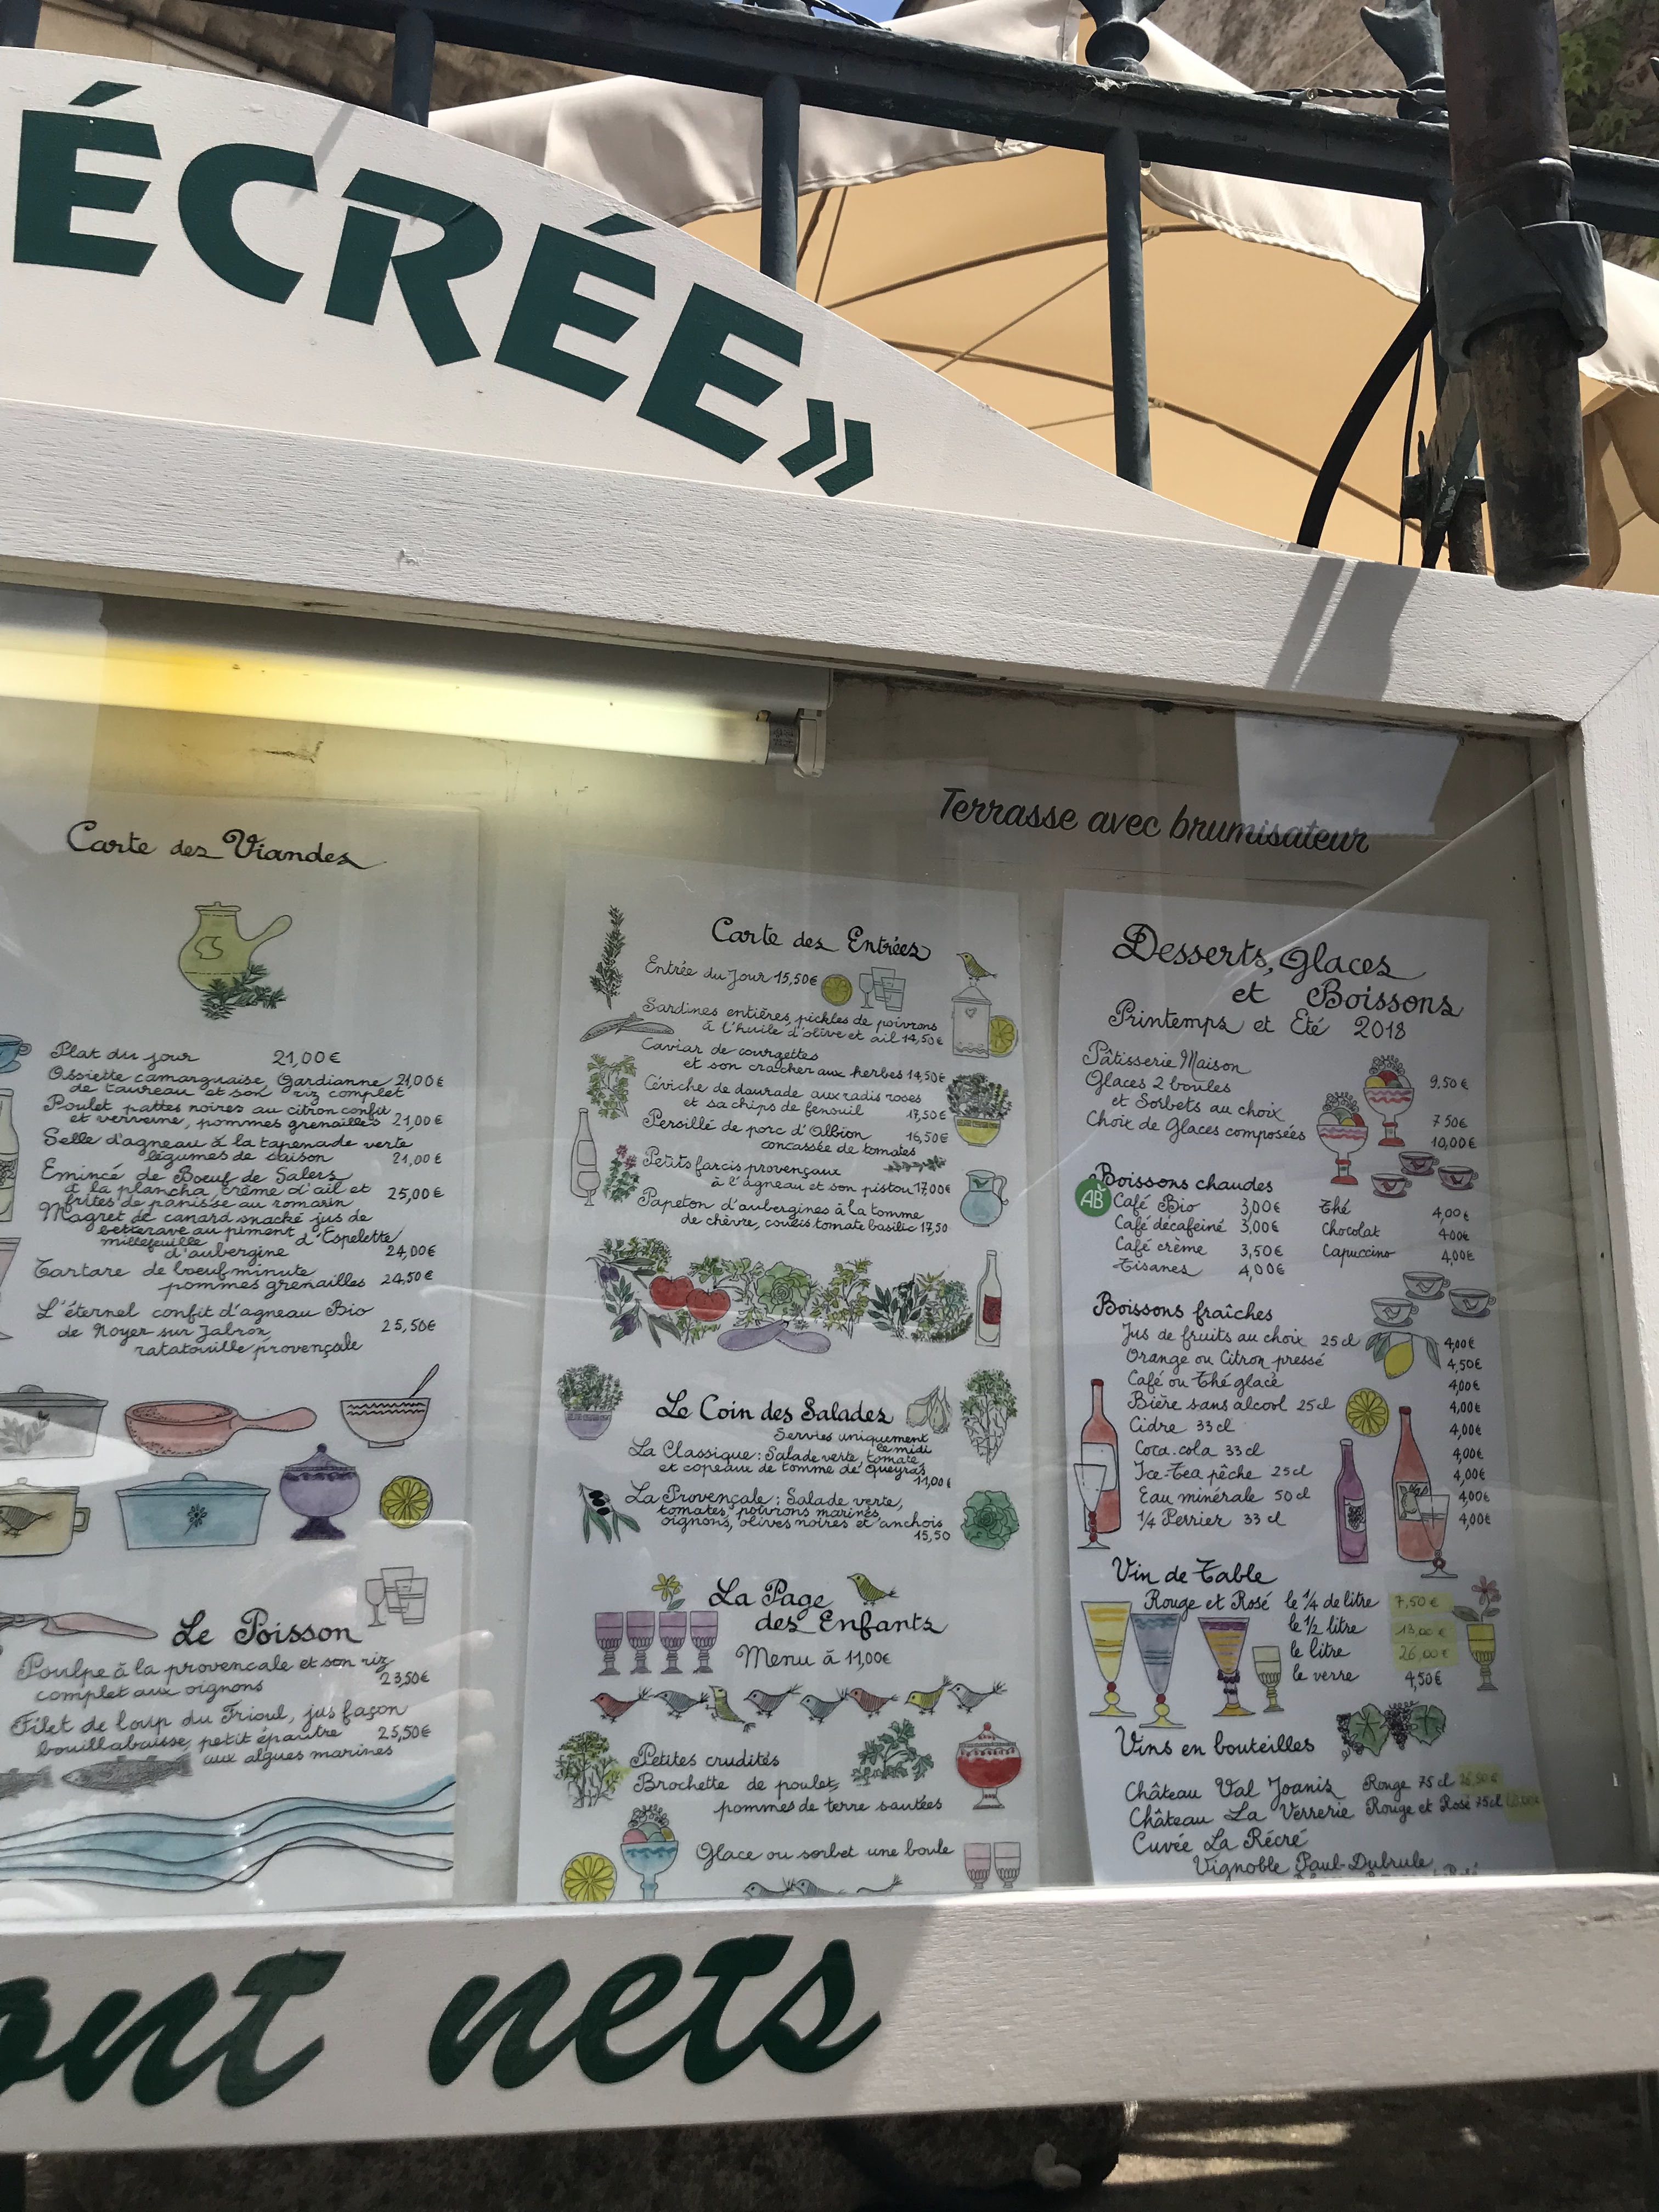 ÉCRÉE»
Terrasse avec brumisateur
Carte des Viandes
Plat du jour 21,00€
Assiette camarguaise, Gardianne 21,00€
de taureau et son riz complet
Poulet pattes noires au citron confit
et verveine, pommes grenailles 21,00€
Selle d'agneau à la tapenade verte
légumes de saison 21,00€
Emincé de Boeuf de Salers
à la plancha crème d'ail et 25,00€
frites de panisse au romarin
Magret de canard snacké jus de
betterave au piment d'Espelette
millefeuille
d'aubergine 24,00€
Tartare de boeuf minute
pommes grenailles 24,50€
L'éternel confit d'agneau Bio
de Noyer sur Jabron 25,50€
ratatouille provençale
Le Poisson
Poulpe à la provencale et son riz
complet aux oignons 23,50€
Filet de loup du Frioul, jus façon
bouillabaisse, petit épautre 25,50€
aux algues marines
Carte des Entrées
Entrée du Jour 15,50€
Sardines entières, pickles de poivrons
à l'huile d'olive et ail 14,50€
Caviar de courgettes
et son cracher aux herbes 14,50€
Céviche de daurade aux radis roses
et sa chips de fenouil 17,50€
Persillé de porc d'Albion 16,50€
concassée de tomates
Petits farcis provençaux
à l'agneau et son pistou 17,00€
Papeton d'aubergines à la tomme
de chèvre, coulis tomate basilic 17,50
Le Coin des Salades
Servies uniquement
le midi
La Classique : Salade verte, tomate,
et copeaux de tomme de Queyras
11,00€
La Provençale : Salade verte,
tomates, poivrons marinés,
oignons, olives noires et anchois
15,50
La Page
des Enfants
Menu à 11,00€
Petites crudités
Brochette de poulet,
pommes de terre sautées
Glace ou sorbet une boule
Desserts, Glaces
et Boissons
Printemps et Eté 2018
Pâtisserie Maison 9,50€
Glaces 2 boules
et Sorbets au choix 7,50€
Choix de Glaces composées 10,00€
Boissons chaudes
AB Café Bio 3,00€ Thé 4,00€
Café décafeiné 3,00€ Chocolat 4,00€
Café crème 3,50€ Capuccino 4,00€
Tisanes 4,00€
Boissons fraîches
Jus de fruits au choix 25 cl 4,00€
Orange ou Citron pressé 4,50€
Café ou Thé glacé 4,00€
Bière sans alcool 25cl 4,00€
Cidre 33 cl 4,00€
Coca-cola 33 cl 4,00€
Ice-Tea pêche 25cl 4,00€
Eau minérale 50 cl 4,00€
1/4 Perrier 33 cl 4,00€
Vin de Table
Rouge et Rosé le 1/4 de litre 7,50€
le 1/2 litre 13,00€
le litre 26,00€
le verre 4,50€
Vins en bouteilles
Château Val Joanis Rouge 75 cl
Château La Verrerie Rouge et Rosé 75cl
Cuvée La Récré
Vignoble Paul-Dubrule
ont nets